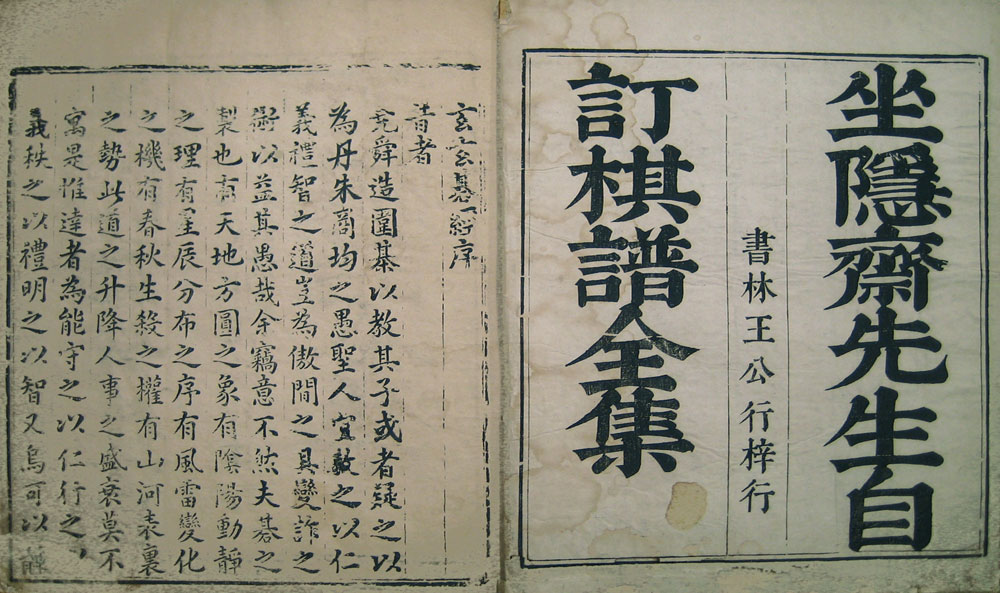 坐隱齋先生自
書林王公行梓行
訂棋譜全集
玄玄碁經序
昔者
堯舜造圍棊以教其子或者疑之以
為丹朱商均之愚聖人宜敎之以仁
義禮智之道豈為傲閒之具變詐之
術以益其愚哉余竊意不然夫碁之
製也有天地方圓之象有陰陽動靜
之理有星辰分布之序有風雷變化
之機有春秋生殺之權有山河表裏
之勢此道之升降人事之盛衰莫不
寓是惟達者為能守之以仁行之
義秩之以禮明之以智又烏可以